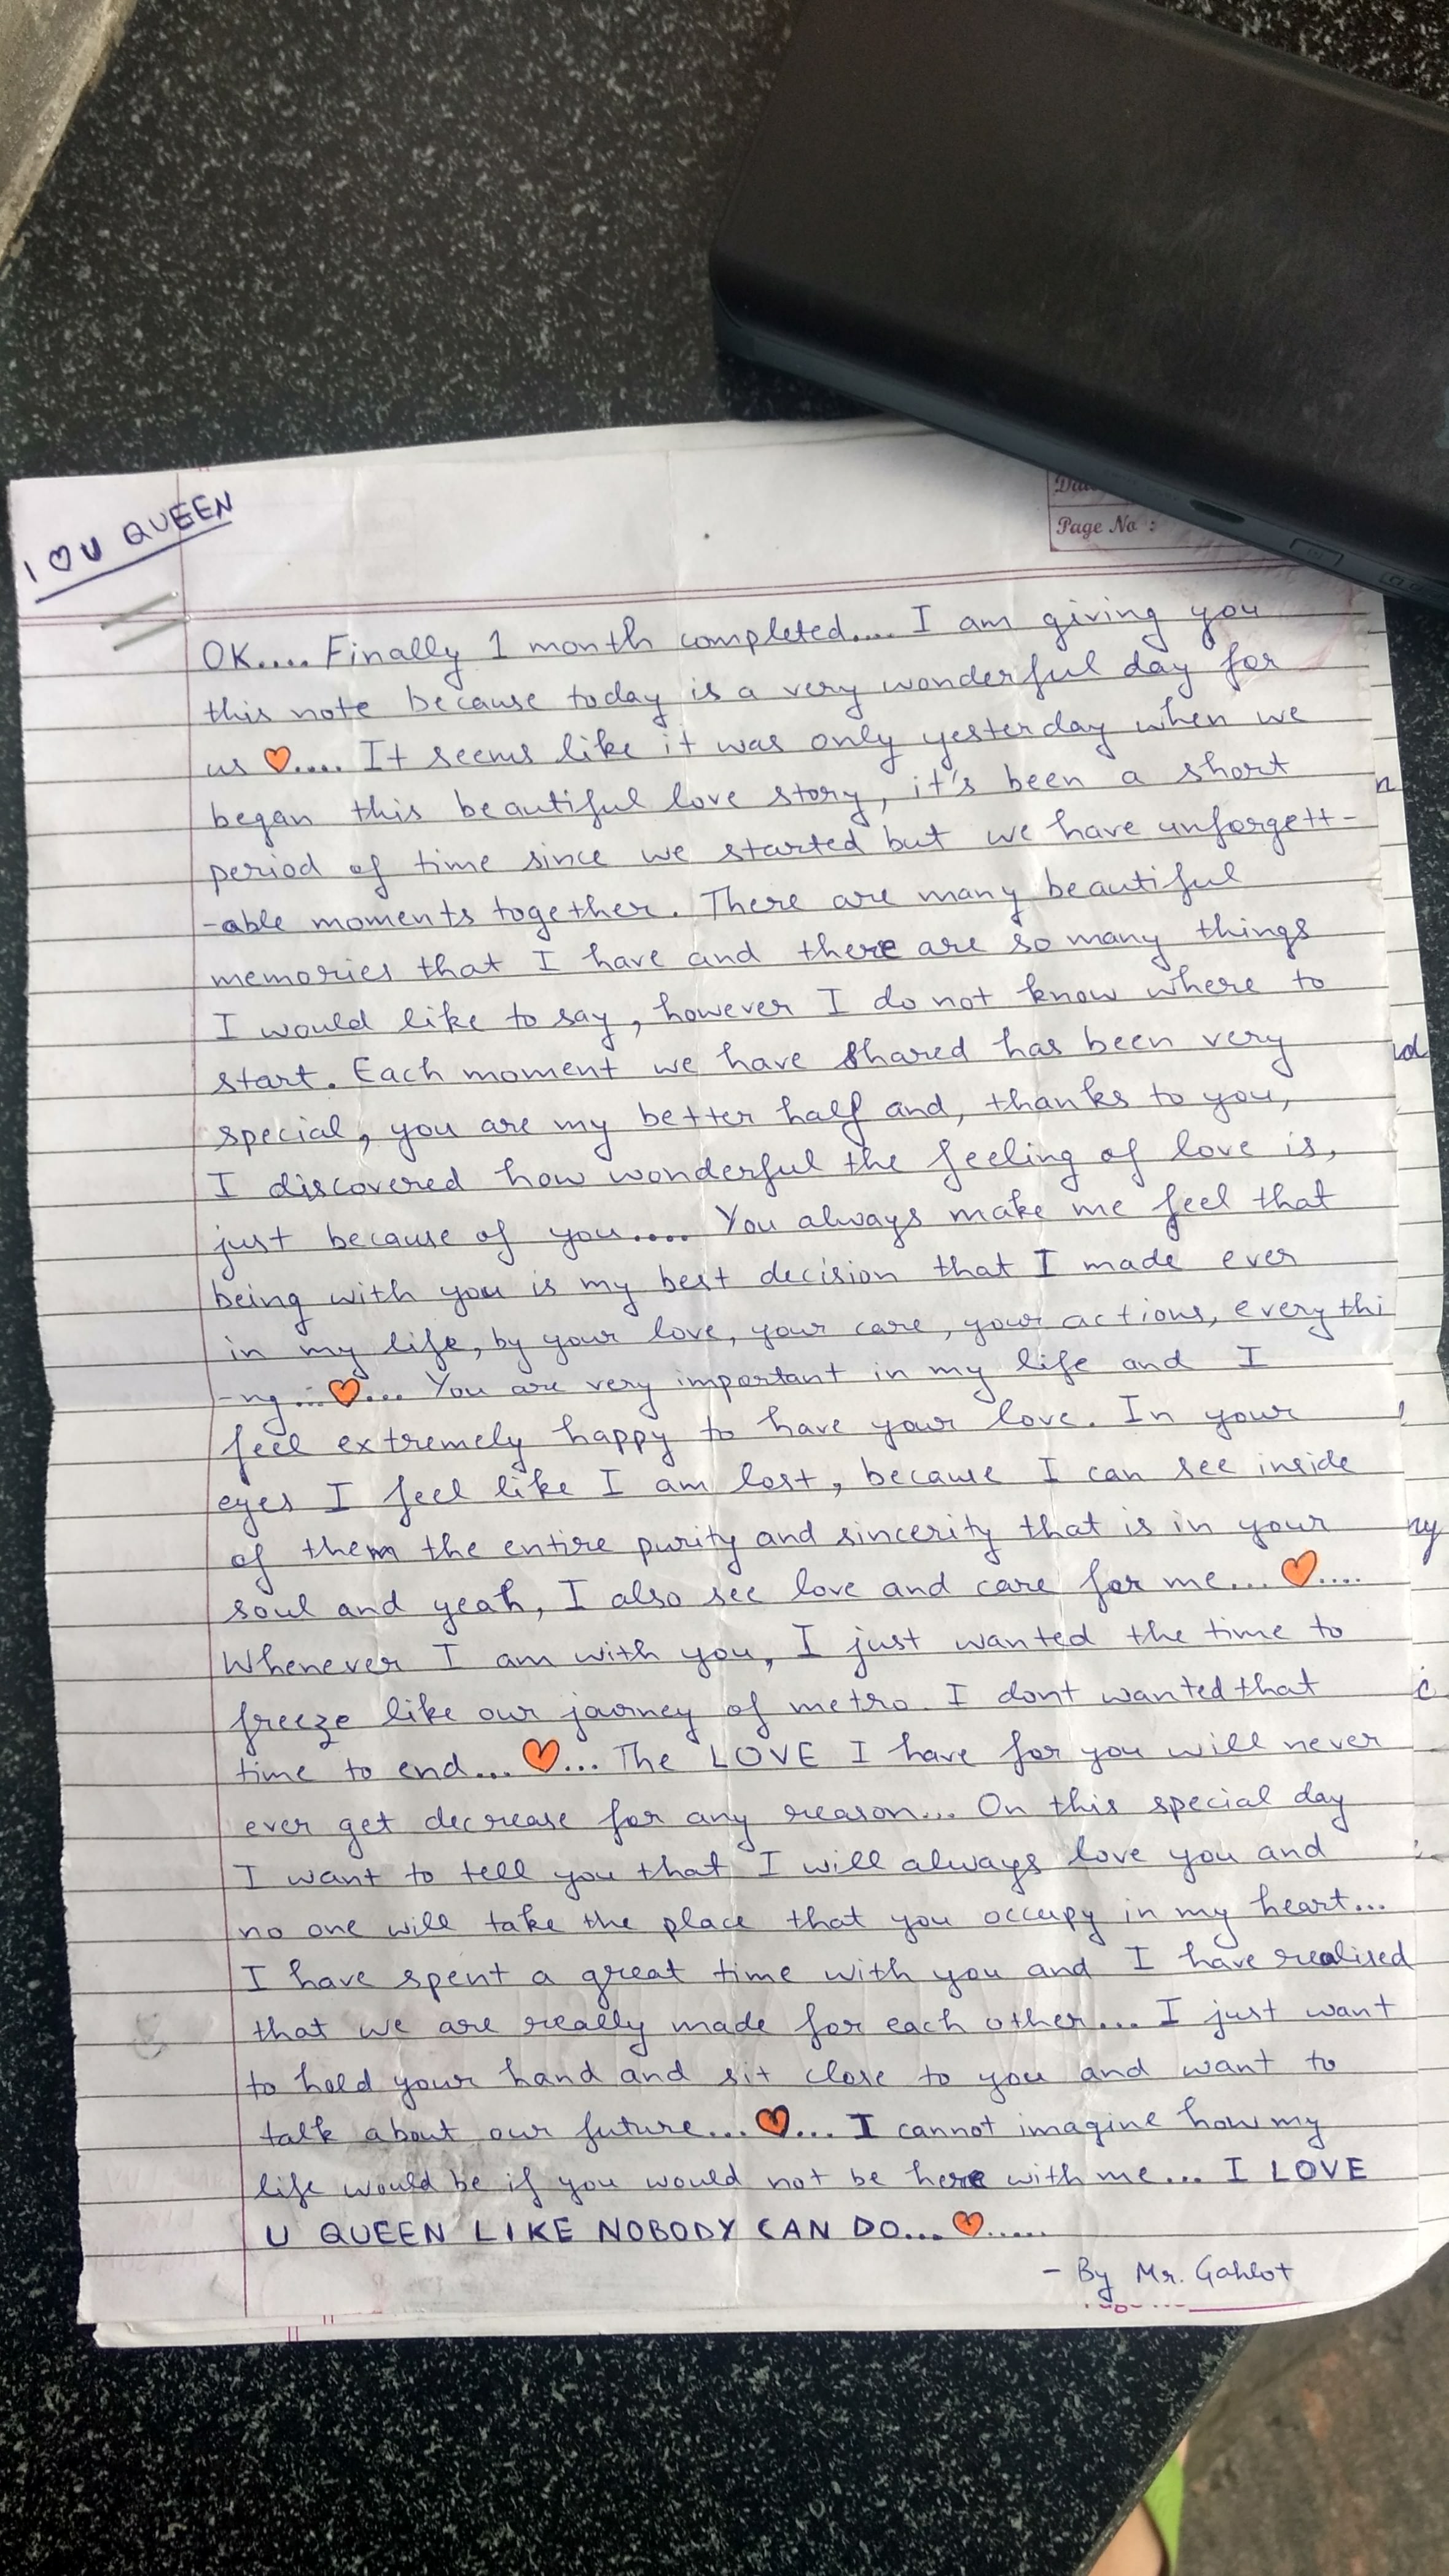 I ♡ U QUEEN
Page No :
OK.... Finally 1 month completed.... I am giving you
this note because today is a very wonderful day for
us ♡.... It seems like it was only yesterday when we
began this beautiful love story, it's been a short
period of time since we started but we have unforgett-
-able moments together. There are many beautiful
memories that I have and there are so many things
I would like to say, however I do not know where to
start. Each moment we have shared has been very
special, you are my better half and, thanks to you,
I discovered how wonderful the feeling of love is,
just because of you.... You always make me feel that
being with you is my best decision that I made ever
in my life, by your love, your care, your actions, everythi
-ng...♡... You are very important in my life and I
feel extremely happy to have your love. In your
eyes I feel like I am lost, because I can see inside
of them the entire purity and sincerity that is in your
soul and yeah, I also see love and care for me... ♡....
Whenever I am with you, I just wanted the time to
freeze like our journey of metro. I dont wanted that
time to end... ♡... The LOVE I have for you will never
ever get decrease for any reason... On this special day
I want to tell you that I will always love you and
no one will take the place that you occupy in my heart...
I have spent a great time with you and I have realised
that we are really made for each other... I just want
to hold your hand and sit close to you and want to
talk about our future...♡... I cannot imagine how my
life would be if you would not be here with me... I LOVE
U QUEEN LIKE NOBODY CAN DO...♡.....
- By Mr. Gahlot